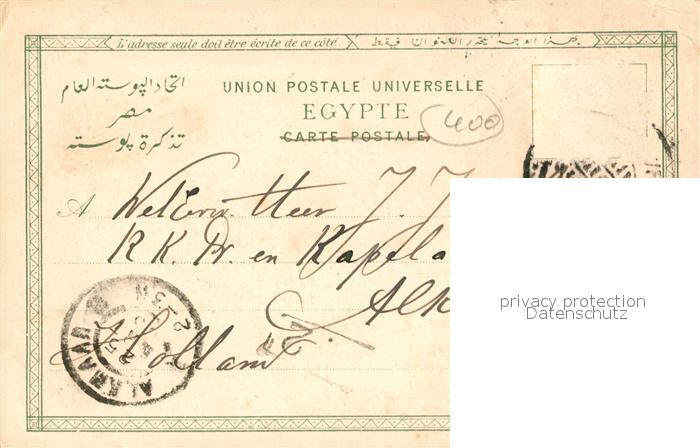 L'adresse seule doit être écrite de ce côté.
اتحاد البوسته العام
مصر
تذكرة بوسته
UNION POSTALE UNIVERSELLE
EGYPTE
CARTE POSTALE
400
A WelEerw. Heer J. J.
R.K. Pr. en Kapela
Alk
Holland
ALKMAAR
privacy protection
Datenschutz